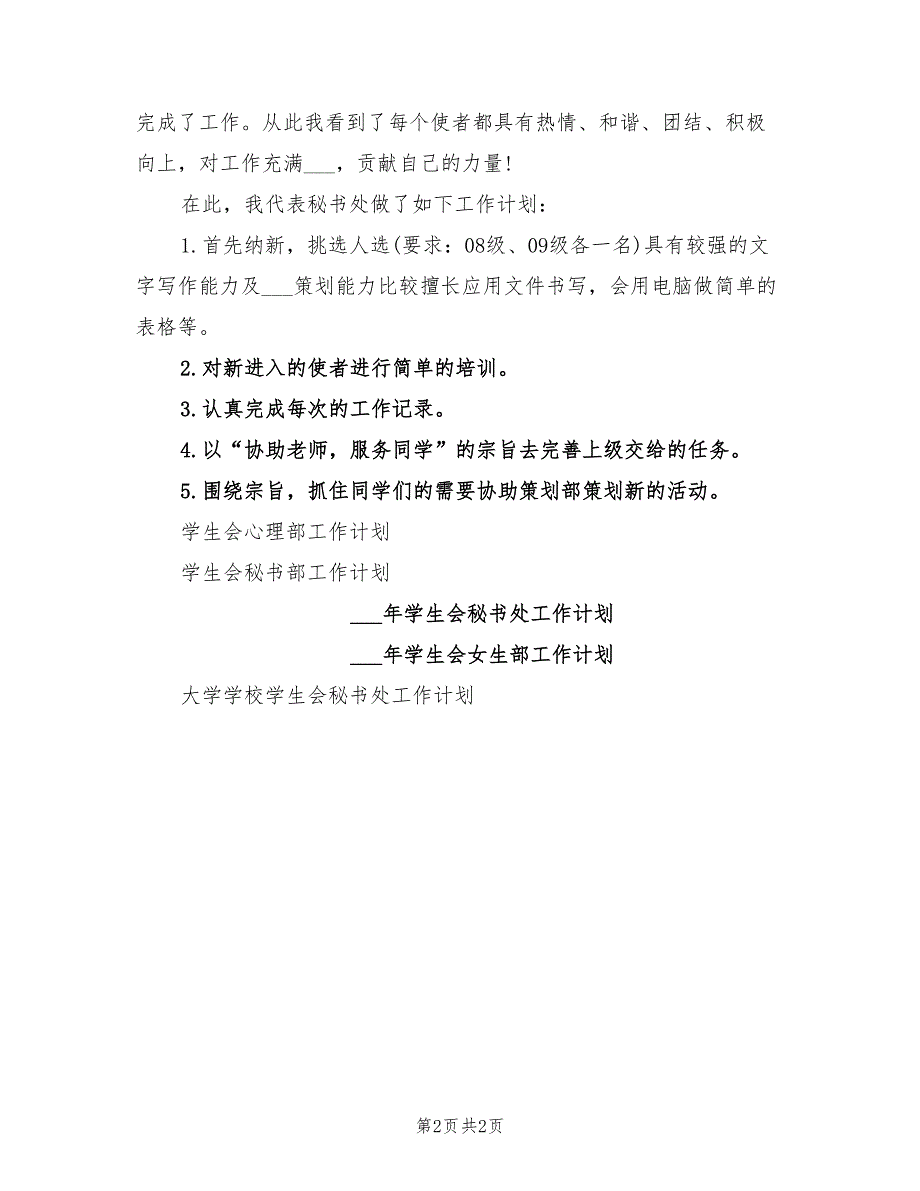 完成了工作。从此我看到了每个使者都具有热情、和谐、团结、积极
向上，对工作充满___，贡献自己的力量!
在此，我代表秘书处做了如下工作计划：
1.首先纳新，挑选人选(要求：08级、09级各一名)具有较强的文
字写作能力及___策划能力比较擅长应用文件书写，会用电脑做简单的
表格等。
2.对新进入的使者进行简单的培训。
3.认真完成每次的工作记录。
4.以“协助老师，服务同学”的宗旨去完善上级交给的任务。
5.围绕宗旨，抓住同学们的需要协助策划部策划新的活动。
学生会心理部工作计划
学生会秘书部工作计划
___年学生会秘书处工作计划
___年学生会女生部工作计划
大学学校学生会秘书处工作计划
第2页 共2页